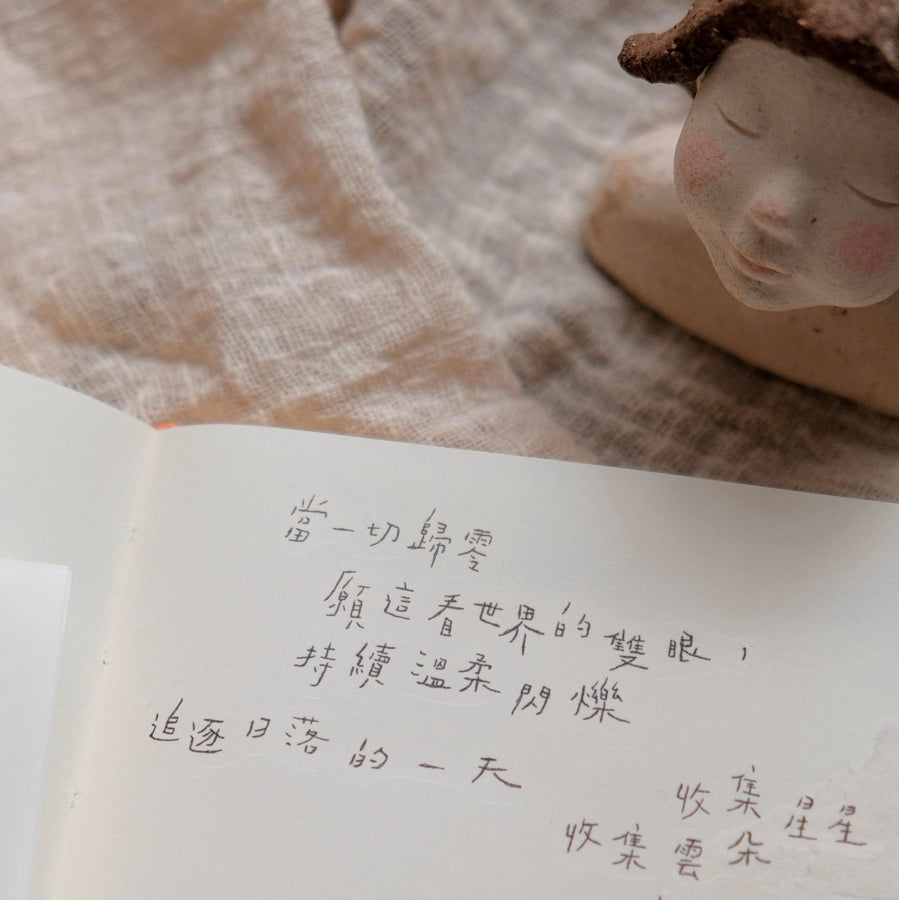 當一切歸零
願這看世界的雙眼，
持續溫柔閃爍
追逐日落的一天
收集星星
收集雲朵